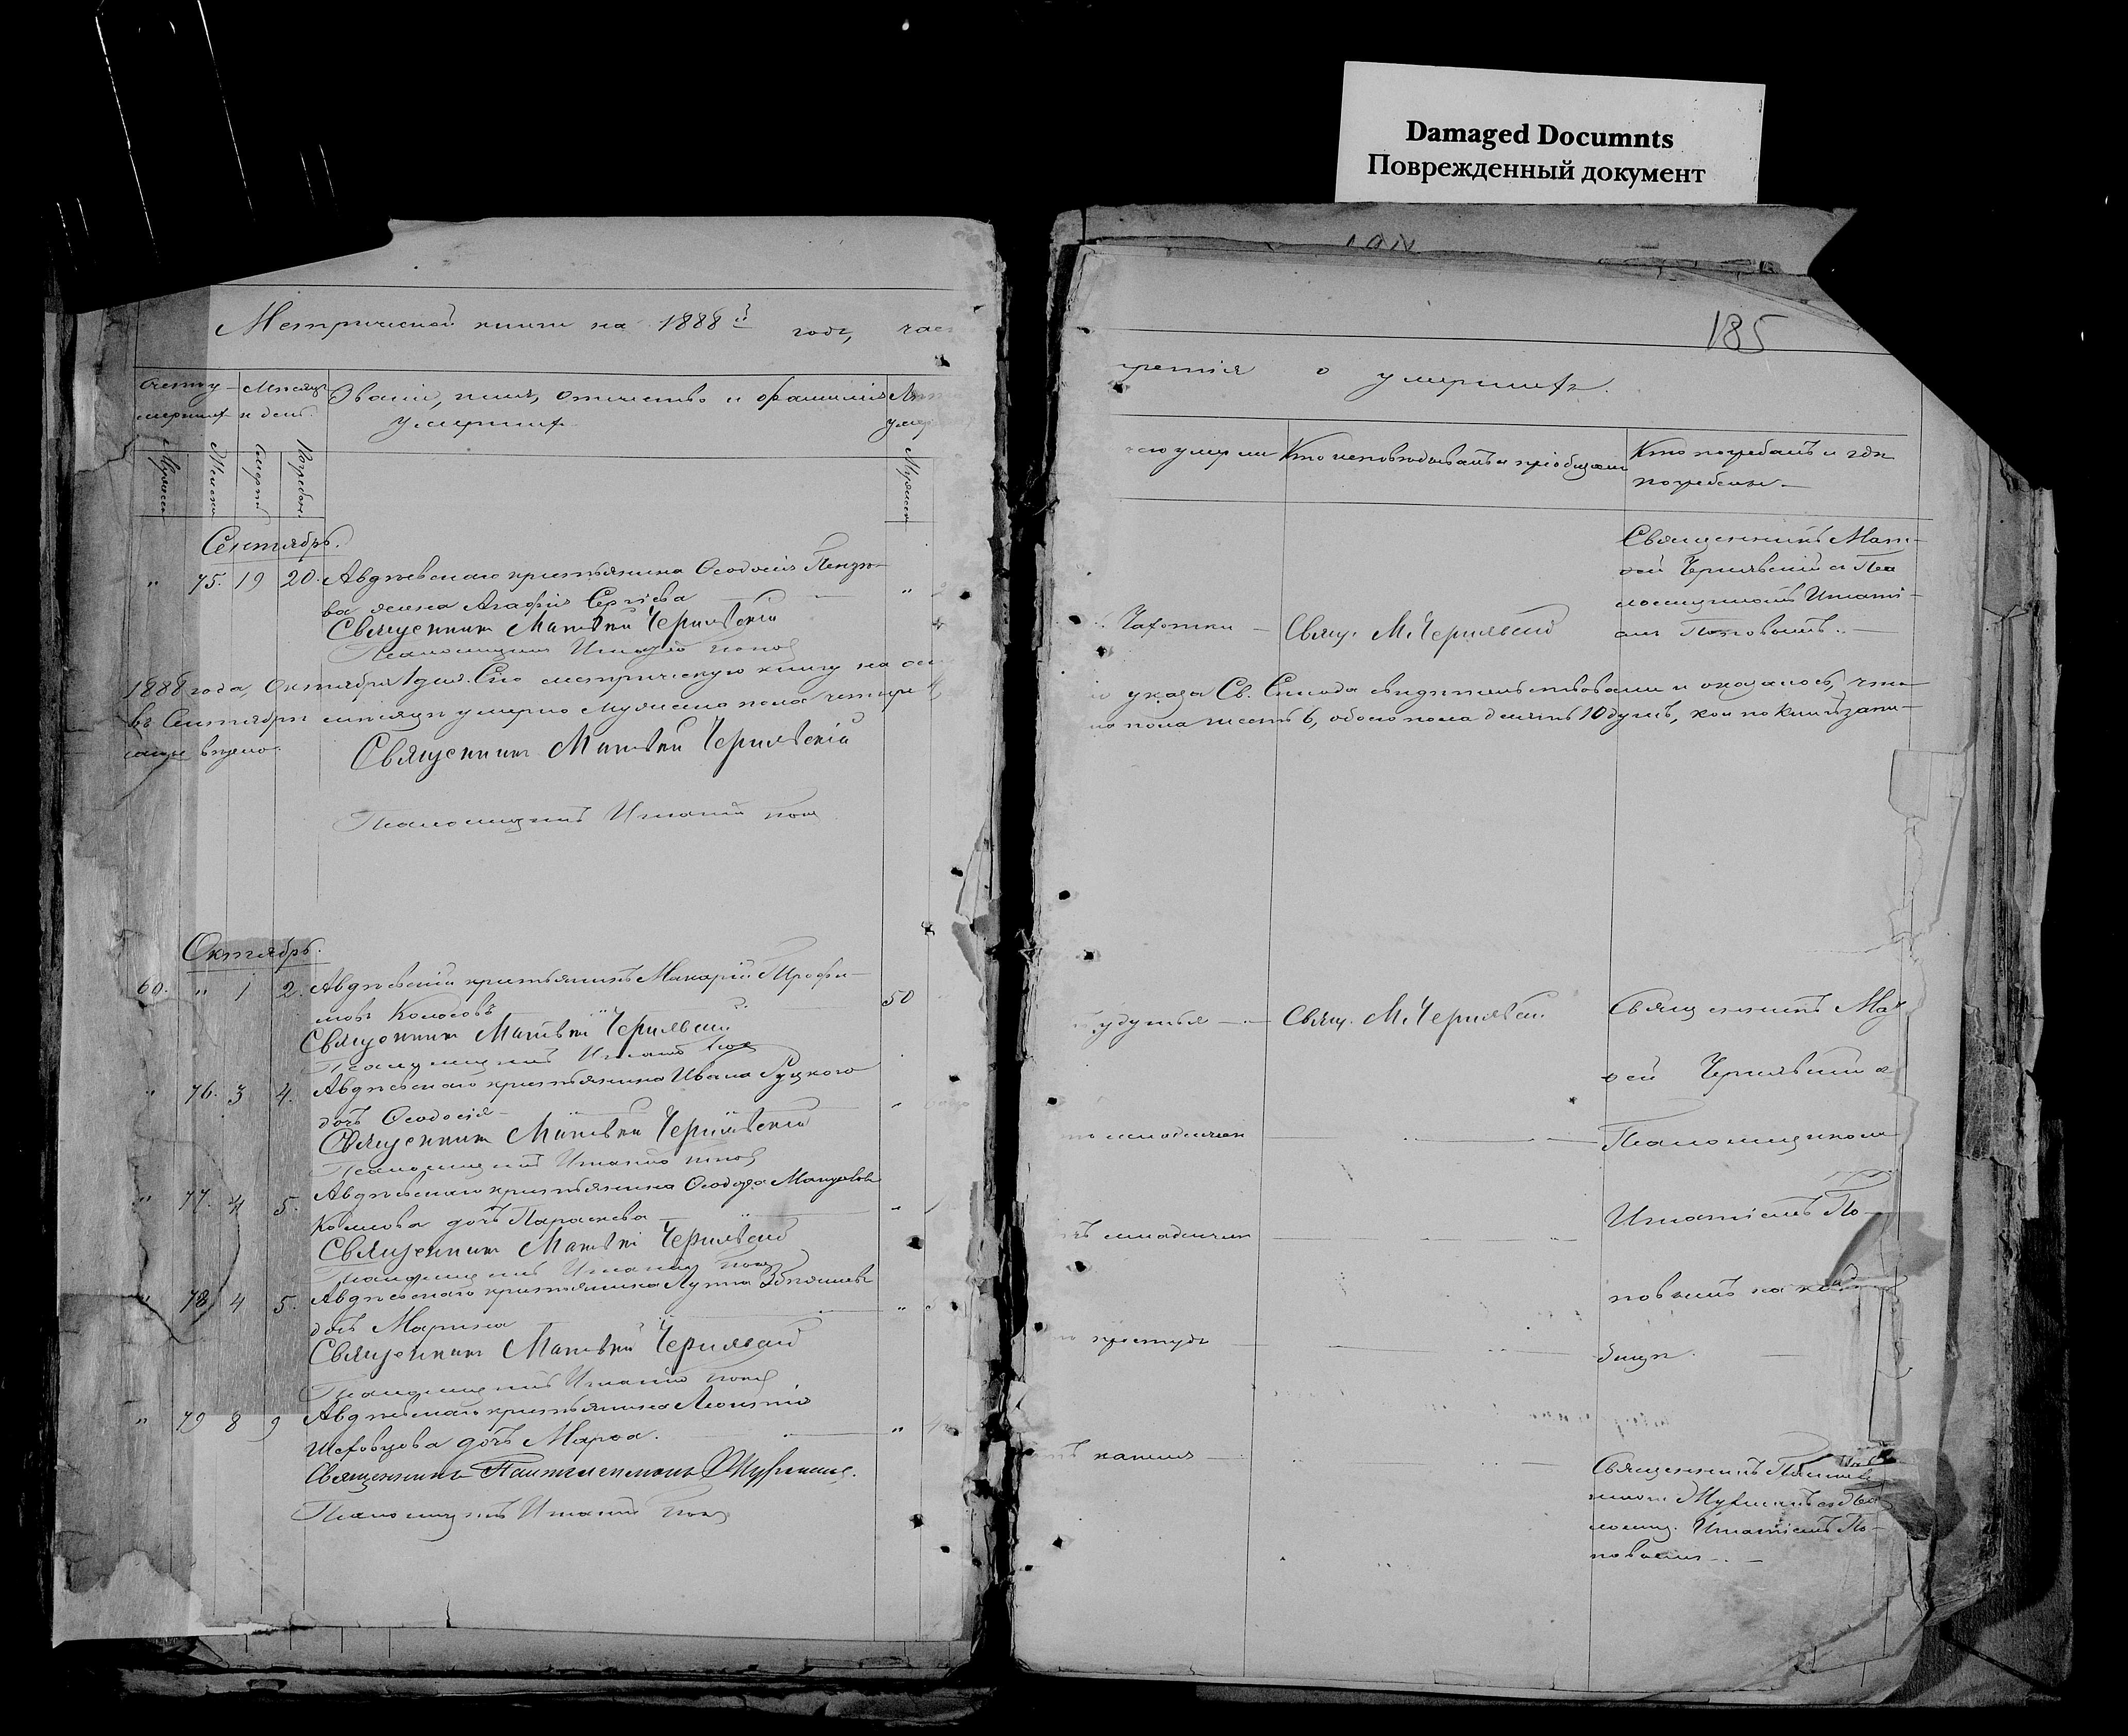 Damaged Documnts
Поврежденный документ
185
Метрической книги на 1888й годъ, час
Счетъ у-
мершихъ
Мѣсяцъ
и день.
Званіе, имя, отчество и фамилія
умершихъ
Лѣт
умер
Мужеска
Женска
Смерти
Погребен.
Мужеска
Сентябрь.
" 75. 19 20. Авдѣевскаго крестьянина Ѳеодосія
ва жена Агафія Сергіева "
Священникъ Матвѣй Чернявскій
Псаломщикъ Игнатій Попов
1888 года, Октября 1 дня. Сію метрическую книгу на осн
въ Сентябрѣ мѣсяцѣ умерло мужеска пола четыре 4,
саны вѣрно.
Священникъ Матвѣй Чернявскій
Псаломщикъ Игнатій Поп
Октябрь.
60. " 1 2. Авдѣевскій крестьянинъ Макарій Трофи-
мовъ Колосовъ 50
Священникъ Матвѣй Чернявскій
Псаломщикъ Игнатій Поп
" 76. 3 4. Авдѣевскаго крестьянина Ивана Руцкого
дочь Ѳеодосія "
Священникъ Матвѣй Чернявскій
Псаломщикъ Игнатій Попов
" 77. 4 5. Авдѣевскаго крестьянина Ѳеодора
дочь Параскева "
Священникъ Матвѣй Чернявскій
Псаломщикъ Игнатій Попов
" 78 4 5. Авдѣевскаго крестьянина Луппа
дочь Марина "
Священникъ Матвѣй Чернявскій
Псаломщикъ Игнатій Попов
" 79 8 9 Авдѣевскаго крестьянина Леонтія
Шеховцова дочь Марѳа. "
Священникъ Пантелеимонъ
Псаломщикъ Игнатій Попов
третія о умершихъ.
чего умерли
Кто исповѣдывалъ и пріобщалъ
Кто погребалъ и гдѣ
погребены.
Чахотки
Свящ. М. Чернявскій
Священникъ Мат-
ѳей Чернявскій съ Пса
ломщикомъ Игнаті-
емъ Поповымъ.
указа Св. Синода свидѣтельствовали и оказалось, что
пола шесть 6, обоего пола десять 10 душъ, кои по книгѣ запи-
удушья
Свящ. М. Чернявскій
Священникъ Мат
ѳей Чернявскій съ
младенчек
Псаломщикомъ
младенчек
Игнатіемъ По-
повымъ на клад
простуды
бищѣ.
кашля
Священникъ
съ Пса
ломщ. Игнатіемъ По-
повымъ.